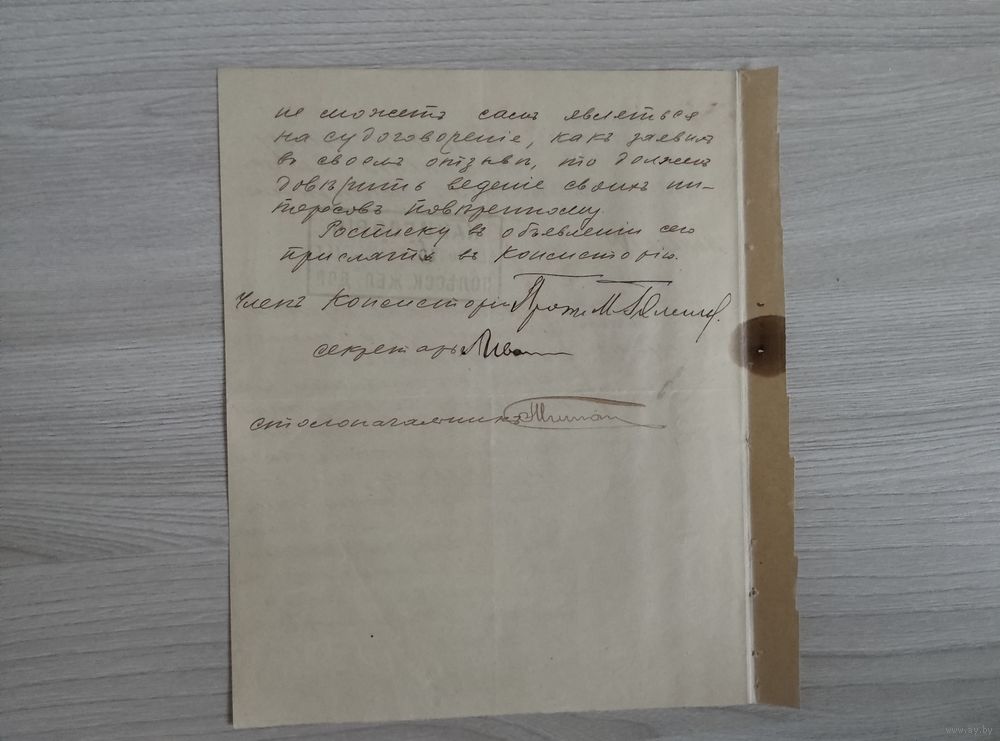 не можетъ самъ являться
на судоговореніе, какъ заявилъ
въ своемъ отзывѣ, то долженъ
довѣрить веденіе своихъ ин-
тересовъ повѣренному.
Росписку въ объявленіи сего
прислать въ Консисторію.
Членъ Консисторіи Прот. М.
секретарь
столоначальникъ
ПОЛѢССК. ЖЕЛ. ДОР.
www.ay.by